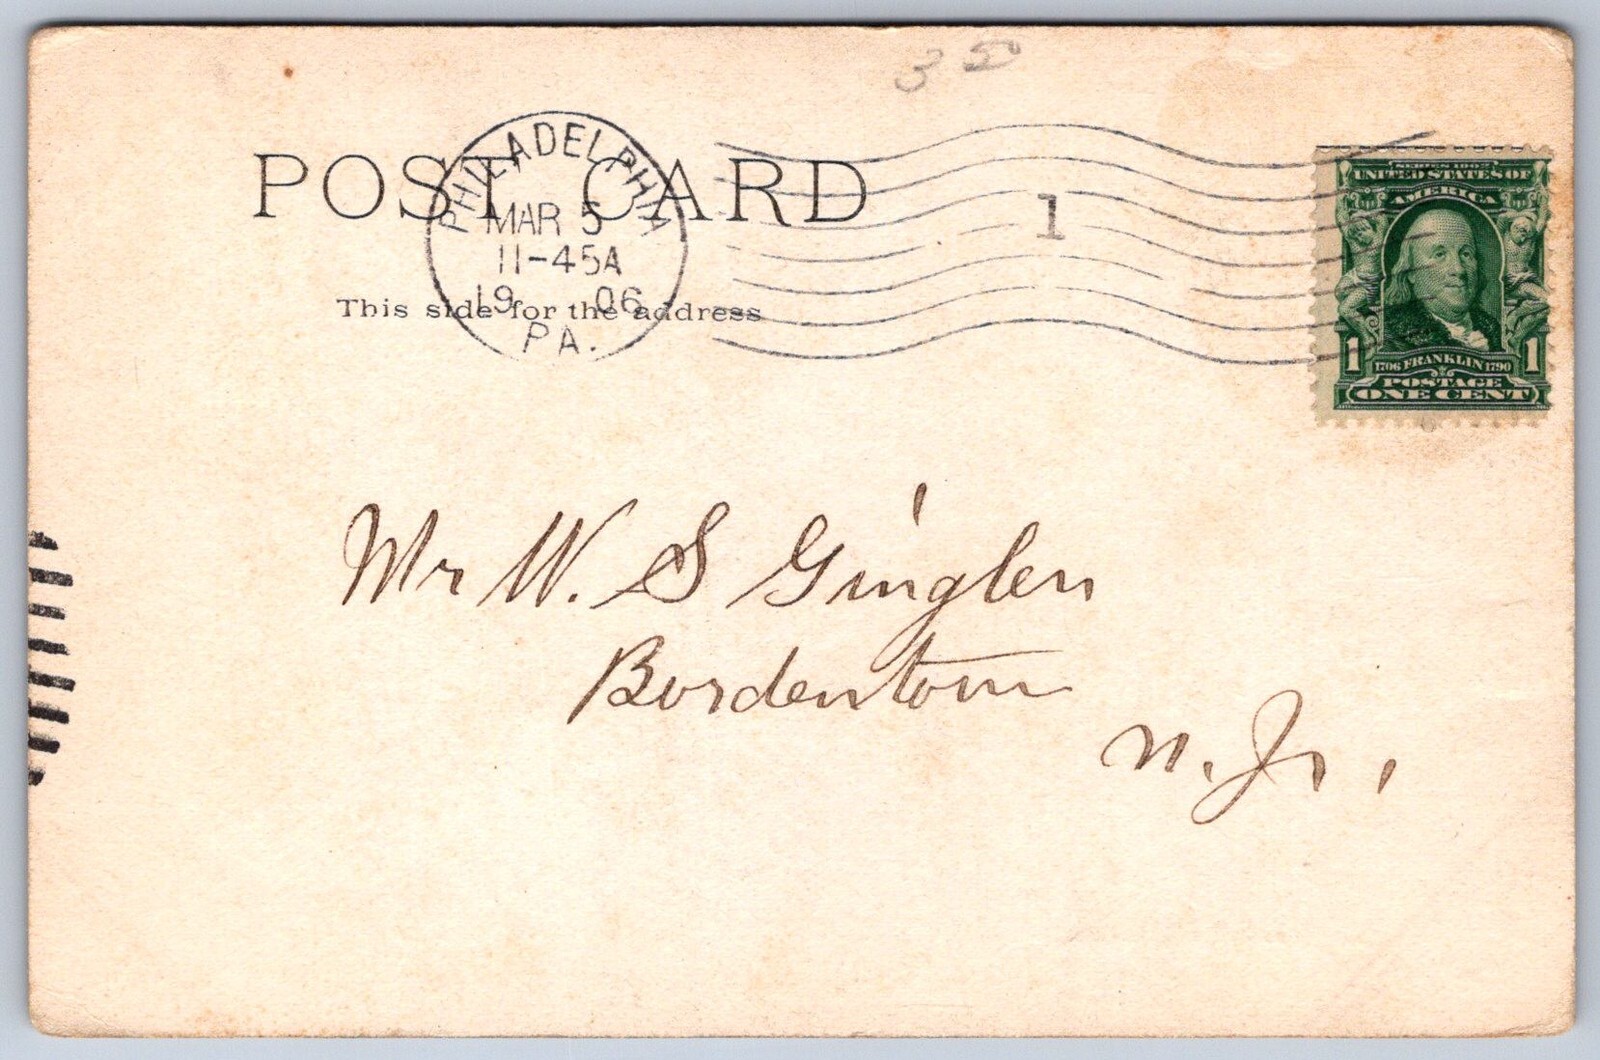 3 50
POST CARD
PHILADELPHIA
MAR 5
11-45A
19 06
PA.
1
This side for the address
SERIES 1902
UNITED STATES OF
AMERICA
1 1
1706 FRANKLIN 1790
POSTAGE
ONE CENT
Mr W. S Ginglen
Bordentown
N. Jr,